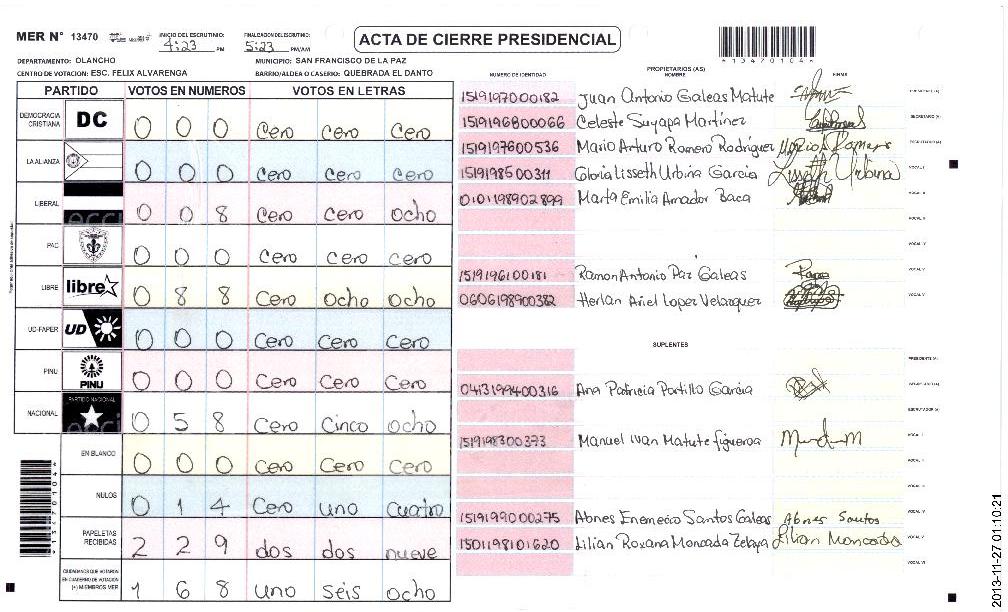 MER N° 13470
INICIO DEL ESCRUTINIO: 4:23 PM
FINALIZACION DEL ESCRUTINIO: 5:23 PM/AM
ACTA DE CIERRE PRESIDENCIAL
DEPARTAMENTO: OLANCHO
MUNICIPIO: SAN FRANCISCO DE LA PAZ
CENTRO DE VOTACION: ESC. FELIX ALVARENGA
BARRIO/ALDEA O CASERIO: QUEBRADA EL DANTO
PARTIDO VOTOS EN NUMEROS VOTOS EN LETRAS
DEMOCRACIA CRISTIANA DC 0 0 0 Cero Cero Cero
LA ALIANZA 0 0 0 Cero Cero Cero
LIBERAL 0 0 8 Cero Cero Ocho
PAC 0 0 0 Cero Cero Cero
LIBRE libre 0 8 8 Cero Ocho Ocho
UD-FAPER UD 0 0 0 Cero Cero Cero
PINU PINU 0 0 0 Cero Cero Cero
NACIONAL PARTIDO NACIONAL 0 5 8 Cero Cinco Ocho
EN BLANCO 0 0 0 Cero Cero Cero
NULOS 0 1 4 Cero uno Cuatro
PAPELETAS RECIBIDAS 2 2 9 dos dos nueve
CIUDADANOS QUE VOTARON EN CUADERNO DE VOTACION (+) MIEMBROS MER 1 6 8 uno seis ocho
NUMERO DE IDENTIDAD
PROPIETARIOS (AS)
NOMBRE
FIRMA
1519197000182 Juan Antonio Galeas Matute PRESIDENTE (A)
1519196800066 Celeste Suyapa Martínez SECRETARIO (A)
1519197600536 Mario Arturo Romero Rodriguez ESCRUTADOR (A)
1519198500311 Gloria Lisseth Urbina Garcia Lisseth Urbina VOCAL I
0101198902899 Marta Emilia Amador Baca VOCAL II
VOCAL III
VOCAL IV
1519196100181 Ramon Antonio Paz Galeas VOCAL V
0606198900382 Herlan Ariel Lopez Velasquez
SUPLENTES
PRESIDENTE (A)
0413199400316 Ana Patricia Portillo Garcia SECRETARIO (A)
ESCRUTADOR (A)
1519198300373 Manuel Ivan Matute figueroa VOCAL I
VOCAL II
VOCAL III
1519199000275 Abnes Enemecio Santos Galeas Abnes Santos VOCAL IV
1501198101620 Lilian Roxana Moncada Zelaya Lilian Moncada VOCAL V
VOCAL VI
2013-11-27 01:10:21